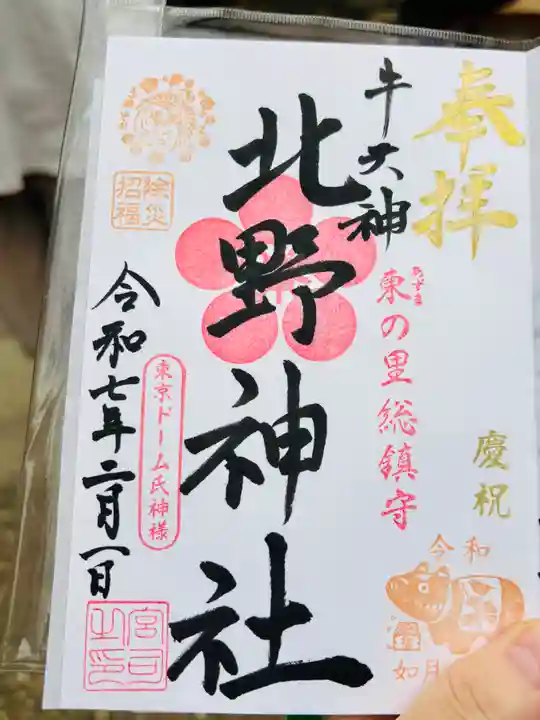 奉拝
慶祝
今和
如月
あずま
東の里総鎮守
牛天神
北野神社
東京ドーム氏神様
令和七年二月一日
除災
招福
宮司
之印